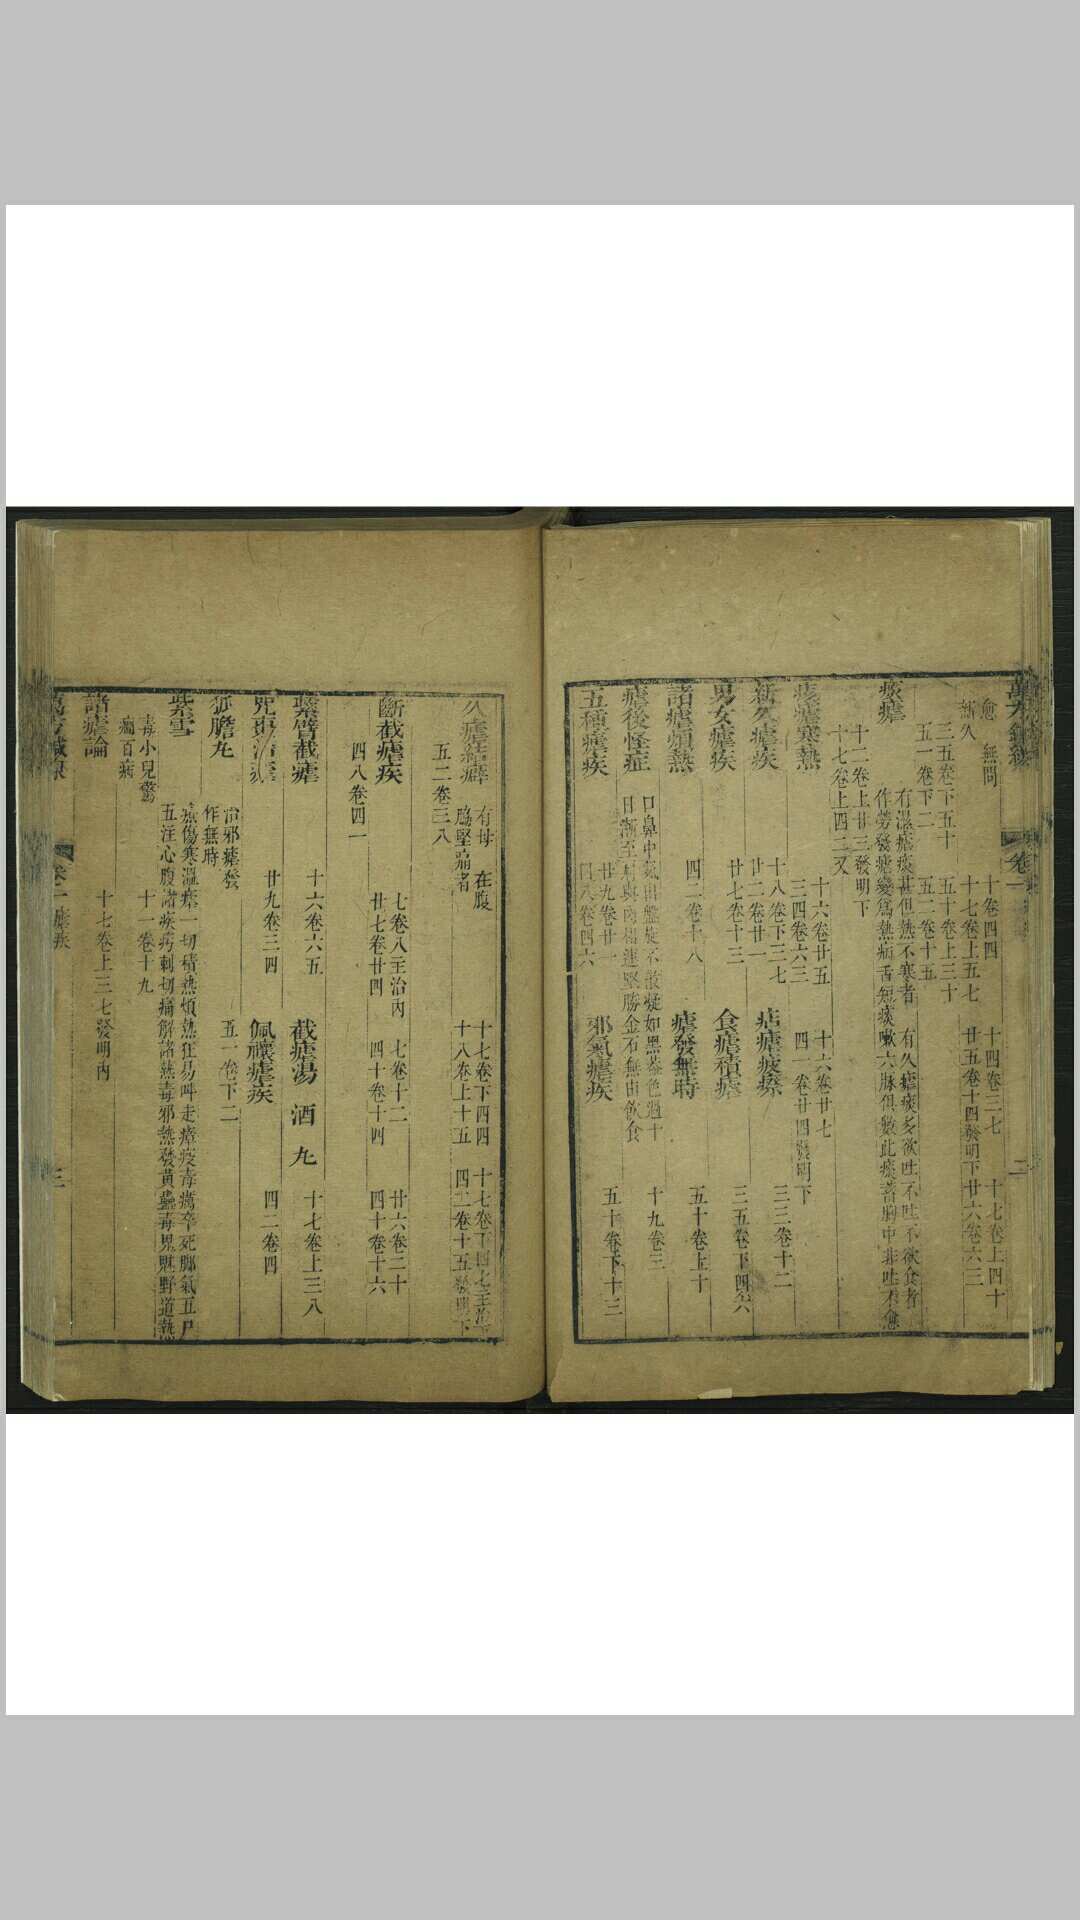 愈 無問 十卷四四 十四卷三七 十七卷上四十
新久 十七卷上五七 廿五卷十四發明下 廿六卷六三
三五卷下五十 五十卷上三十
五一卷下二二 五二卷十五
痎瘧
有溫瘧痰甚但熱不寒者 有久瘧痰多欲吐不吐不欲食者
作勞發瘧變爲熱病舌短痰嗽六脉俱數此痰蓄胸中非吐不愈
十二卷上廿三發明下
十七卷上四二又
瘧寒熱 十六卷廿五 十六卷廿七
三四卷六三 四一卷廿四發明下
新久瘧疾 十八卷下三七 痁瘧疲瘵 三三卷十二
廿二卷廿一 三五卷下四六
男女瘧疾 廿七卷十三 食瘧積瘧
諸瘧煩熱 四二卷十八 瘧發無時 五十卷上十
瘧後怪症
口鼻中氣出盤旋不散凝如黑蓋色過十 十九卷三
日漸至肩與肉相連堅勝金石無由飲食
五種瘧疾 廿九卷廿一 邪氣瘧疾 五十卷下十三
四八卷四六
久瘧結癖 有母 在腹 十七卷下四四 十七卷下四七主治
脇堅痛者 十八卷上十五 四二卷十五發明下
五二卷三八
斷截瘧疾 七卷八主治內 七卷十二 廿六卷二十
廿七卷廿四 四十卷十四 四十卷十六
四八卷四一
繫臂截瘧 十六卷六五 截瘧湯 酒 丸 十七卷上三八
呪棗治瘧 廿九卷三四 佩禳瘧疾 四二卷四
狐膽丸 治邪瘧發 五一卷下二
作無時
紫雪 療傷寒溫瘧一切積熱煩熱狂易叫走瘴疫毒癘卒死脚氣五尸
五注心腹諸疾㽲刺切痛解諸熱毒邪熱發黃蠱毒鬼魅野道熱
毒小兒驚 十一卷十九
癇百病
諸瘧論 十七卷上三七發明內
萬方鍼線 卷一 瘧疾 三